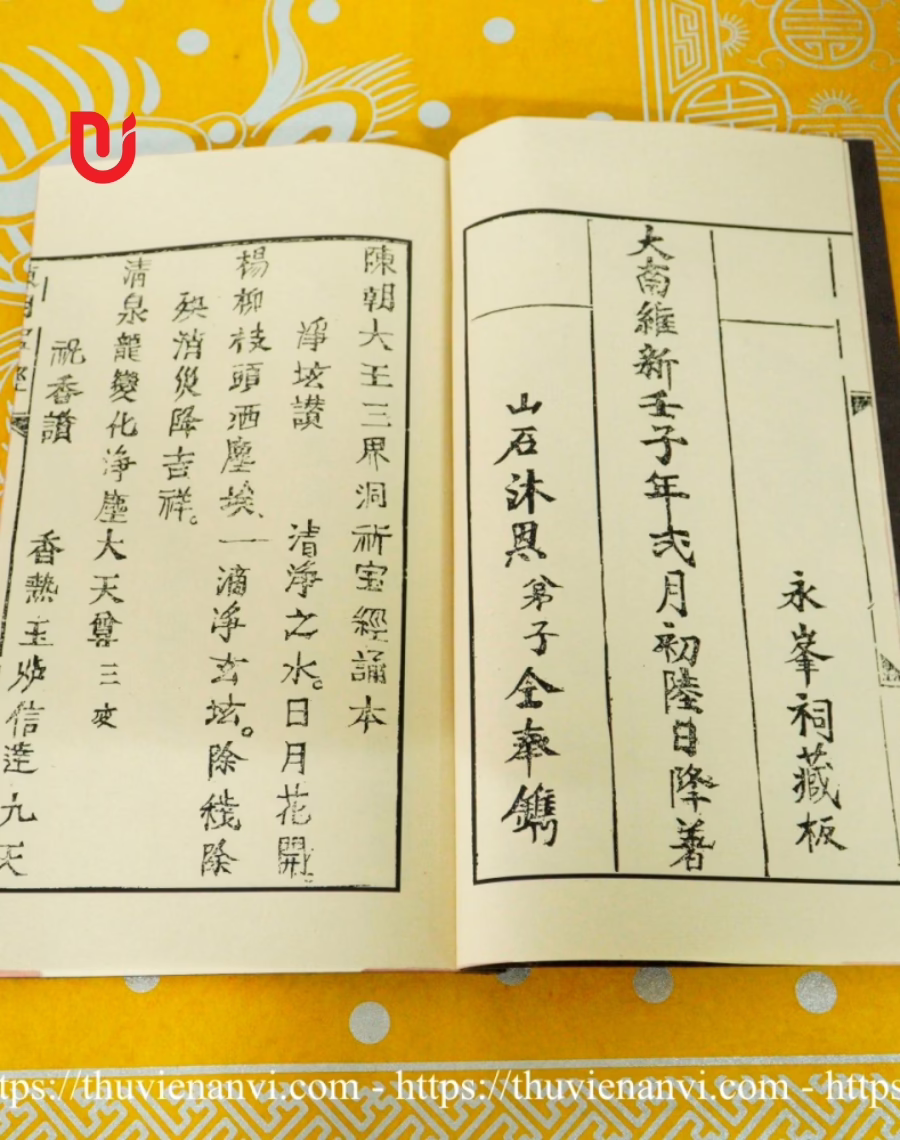 永峯祠藏板
大南維新壬子年弍月初陸日降著
山石沐恩弟子仝奉鐫
陳朝大王三界洞祈宝經誦本
淨坛讃 清淨之水。日月花開。
楊柳枝頭洒塵埃、一滴淨玄坛。除穢除
殃消災降吉祥。
清泉龍變化淨塵大天尊 三变
祝香讃 香热玉炉信達九天
https://thuvienanvi.com - https://thuvienanvi.com - https